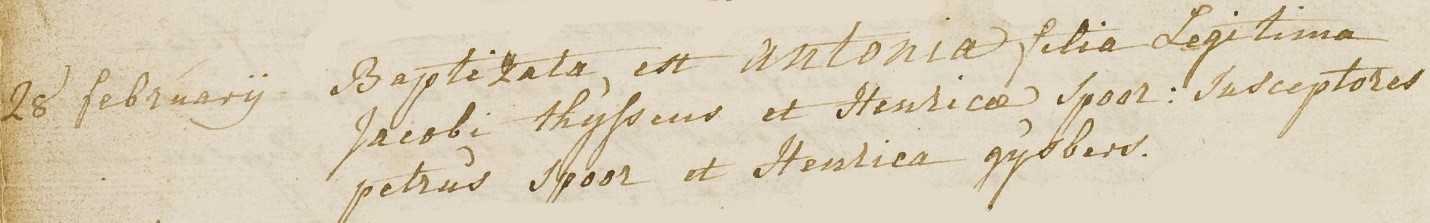 28 februarij Baptizata est Antonia filia Legitima
Jacobi thyssens et Henricæ Spoor: Susceptores
petrus Spoor et Henrica gysbers.